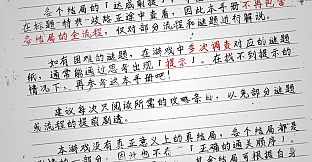 各个结局的「达成前提」
在标题-特典-歧路正途中查看,因此本手册不再包含
各结局的全流程,仅对部分流程和谜题进行解说。
如有困难的谜题,在游戏中多次调查对应的谜题
纸,通常能通过思考出现「提示」。在找不到提示的
情况下,再参考这本手册吧!
建议每次只阅读所需的攻略条比,以免部分谜题
或流程的提前剧透。
本游戏没有真正意义上的真结局,各个结局都是
「正确的通关顺序」
其余结局可根据自